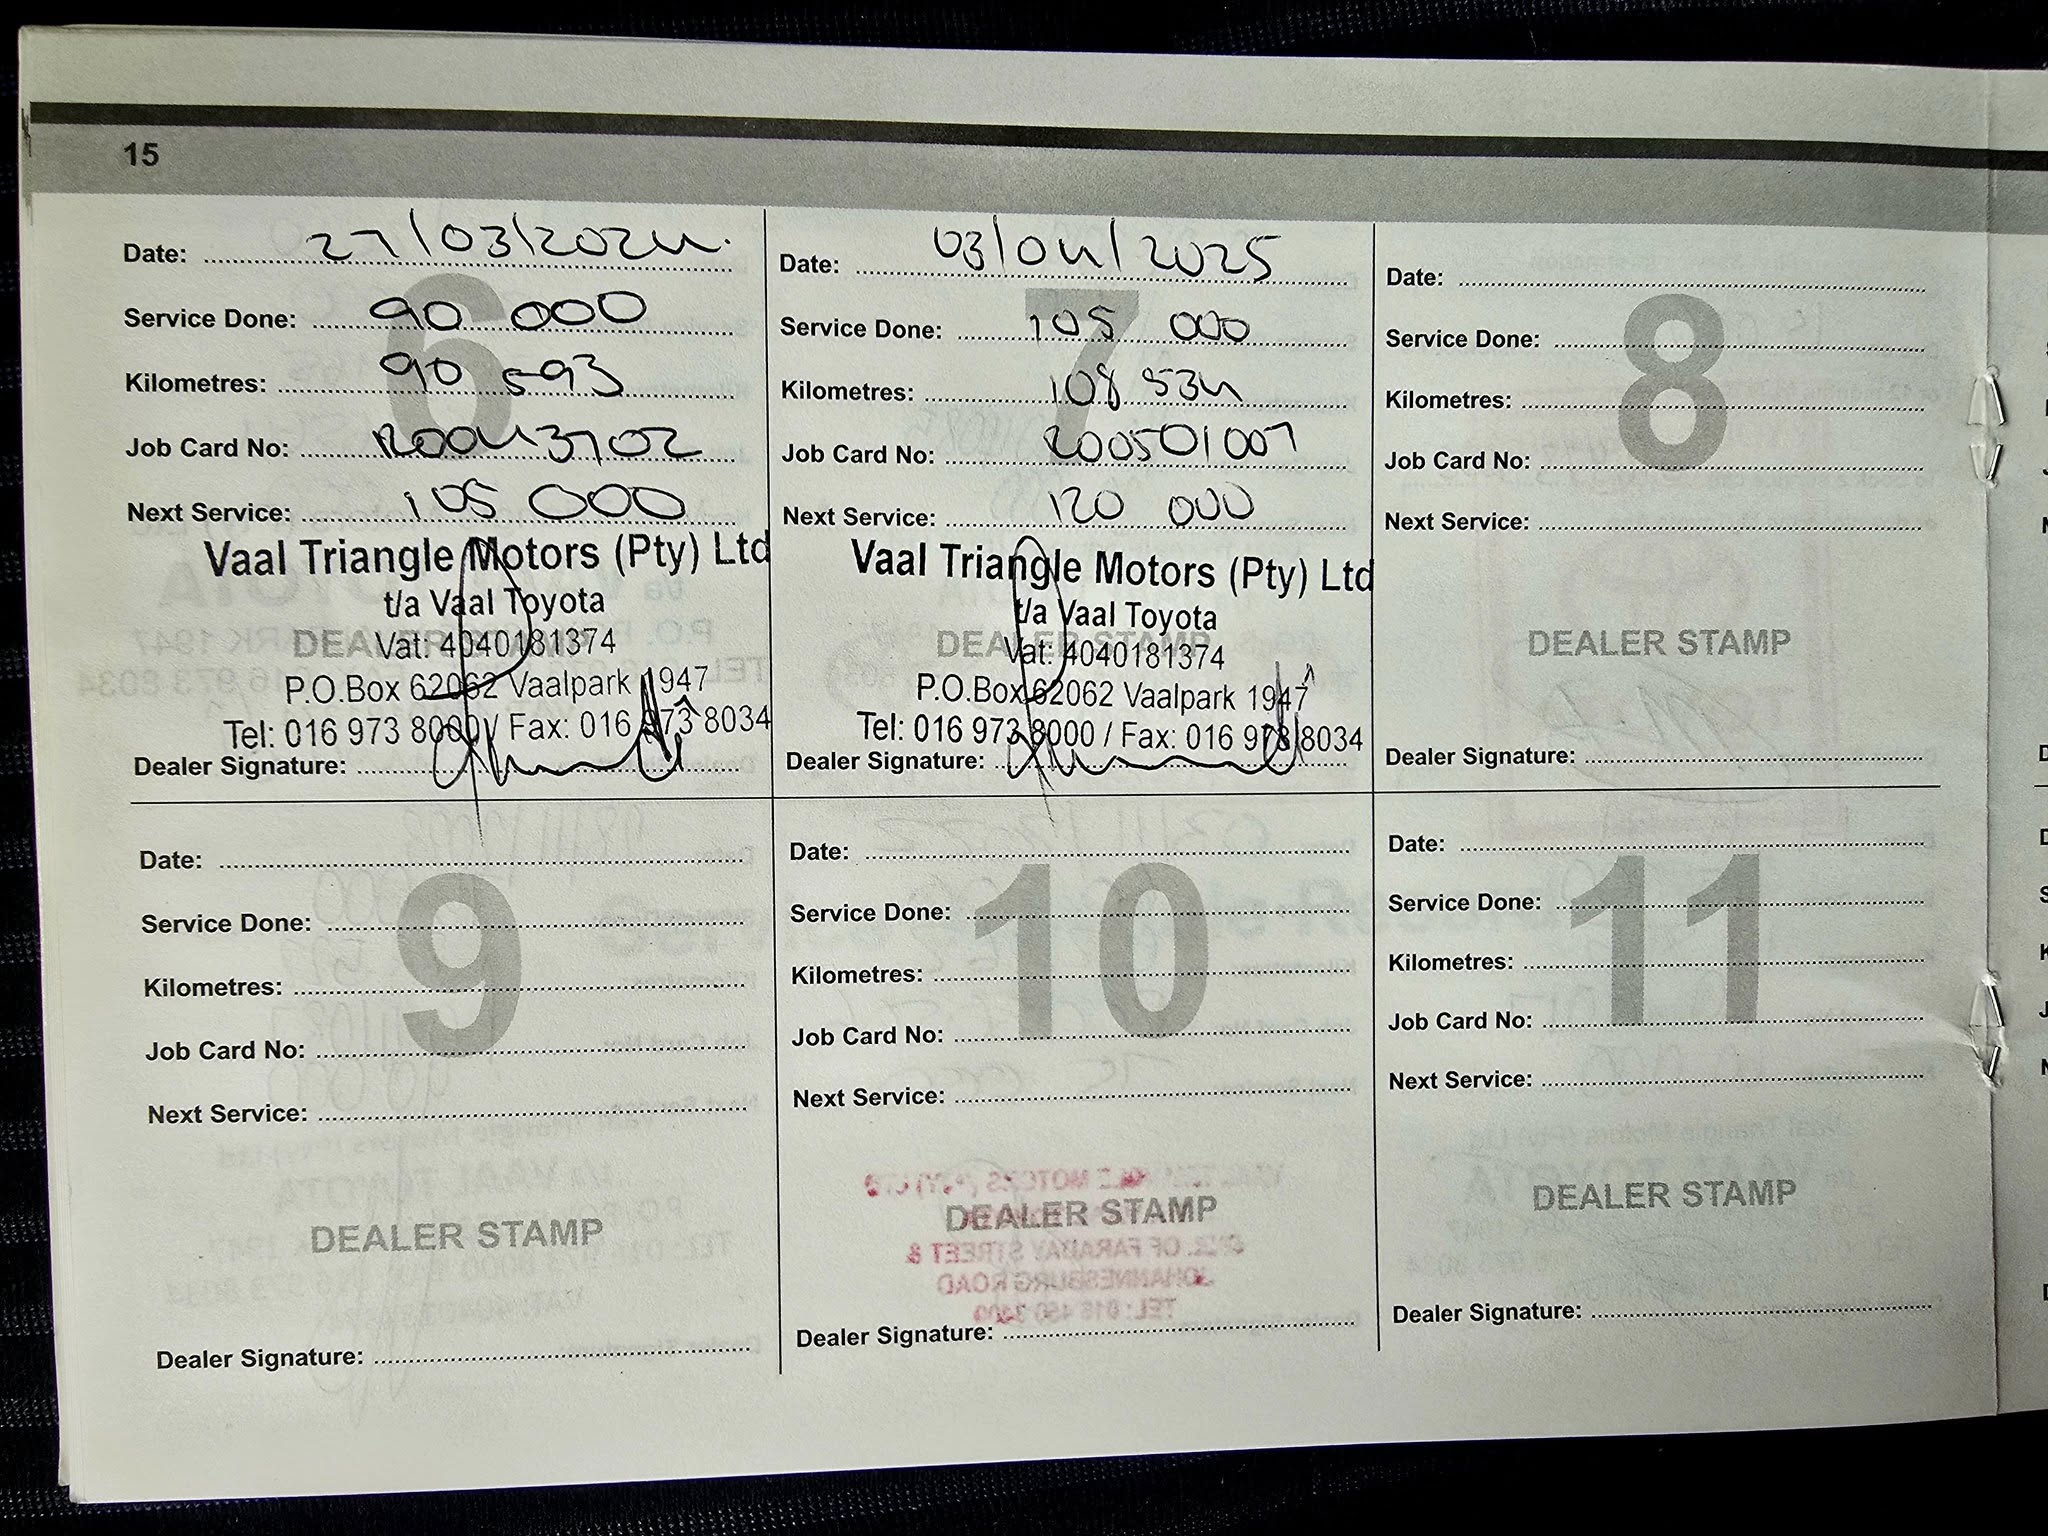 15
Date: 27/03/2024.
Service Done: 90 000
Kilometres: 90 593
Job Card No: R0043702
Next Service: 105 000
6
Vaal Triangle Motors (Pty) Ltd
t/a Vaal Toyota
DEALER STAMP
Vat: 4040181374
P.O.Box 62062 Vaalpark 1947
Tel: 016 973 8000 / Fax: 016 973 8034
Dealer Signature:
Date: 03/04/2025
Service Done: 105 000
Kilometres: 108 534
Job Card No: 200501007
Next Service: 120 000
7
Vaal Triangle Motors (Pty) Ltd
t/a Vaal Toyota
DEALER STAMP
Vat: 4040181374
P.O.Box 62062 Vaalpark 1947
Tel: 016 973 8000 / Fax: 016 973 8034
Dealer Signature:
Date:
Service Done:
Kilometres:
Job Card No:
Next Service:
8
DEALER STAMP
Dealer Signature:
Date:
Service Done:
Kilometres:
Job Card No:
Next Service:
9
DEALER STAMP
Dealer Signature:
Date:
Service Done:
Kilometres:
Job Card No:
Next Service:
10
DEALER STAMP
Dealer Signature:
Date:
Service Done:
Kilometres:
Job Card No:
Next Service:
11
DEALER STAMP
Dealer Signature: